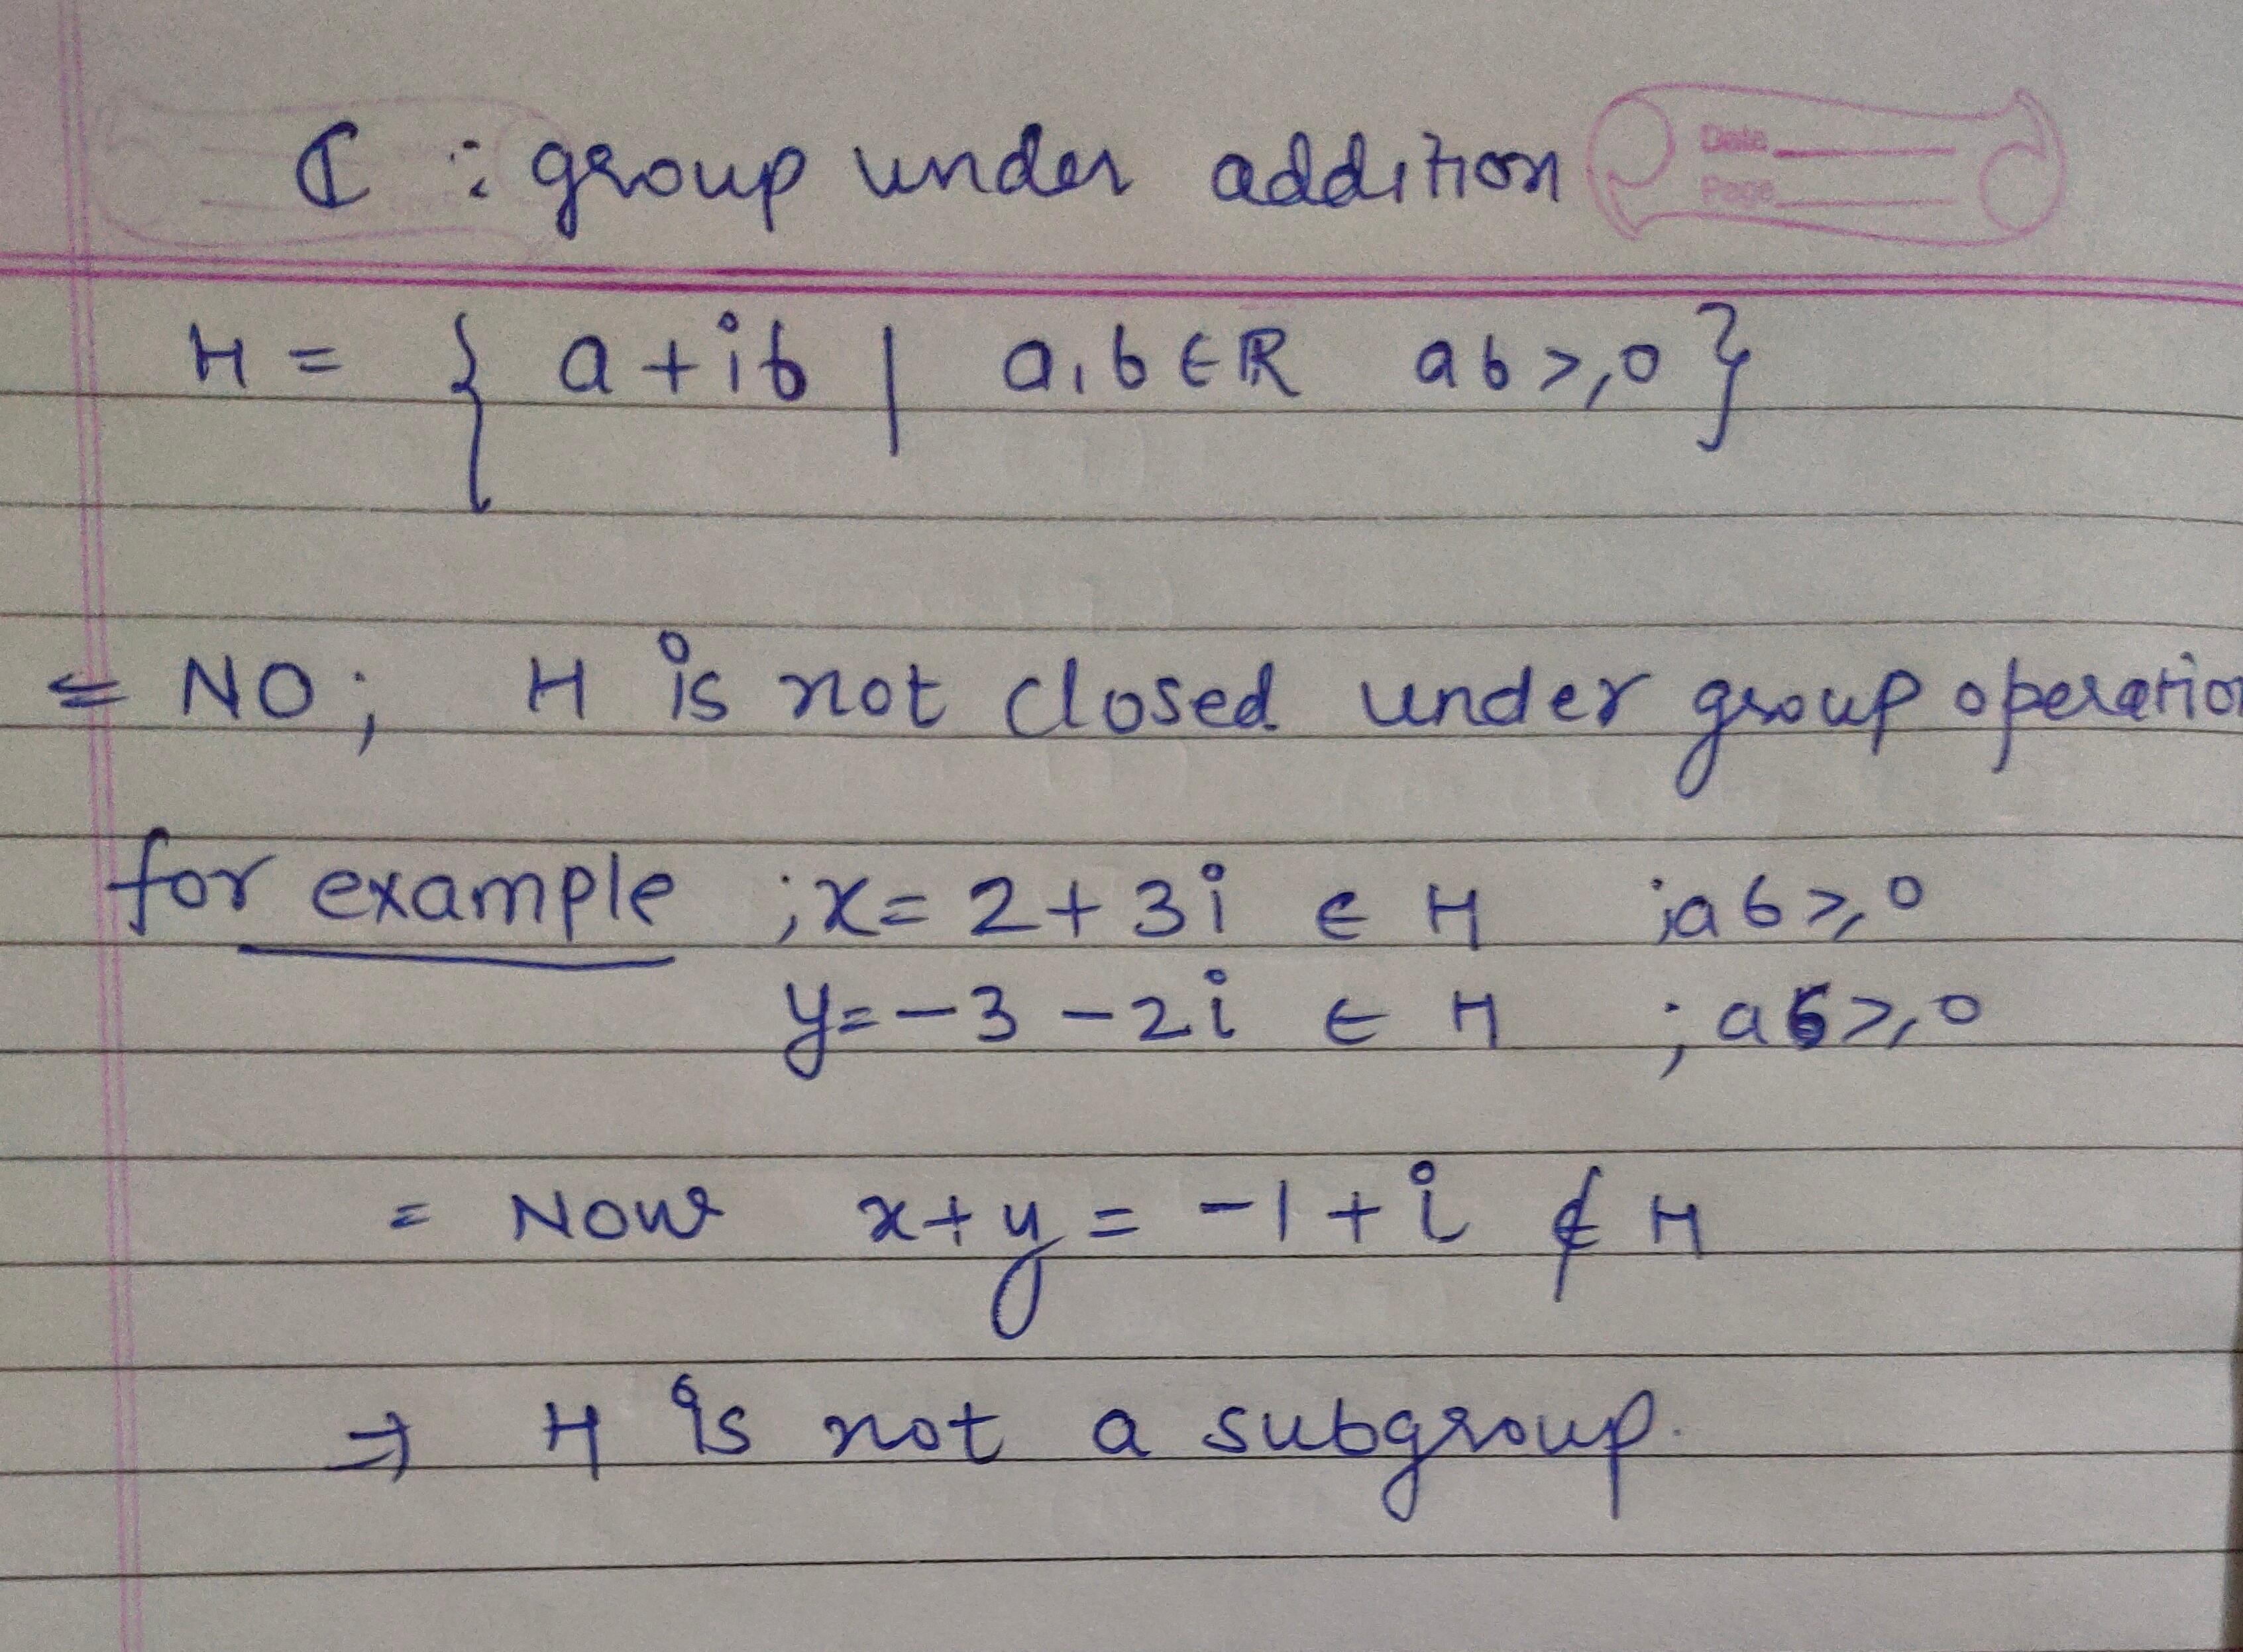 ℂ : group under addition
Date
Page
H = { a+ib | a,b ∈ ℝ ab ≥ 0 }
= NO ; H is not closed under group operation
for example ; x = 2+3i ∈ H ; ab ≥ 0
y = -3 -2i ∈ H ; ab ≥ 0
= Now x+y = -1+i ∉ H
⇒ H is not a subgroup.